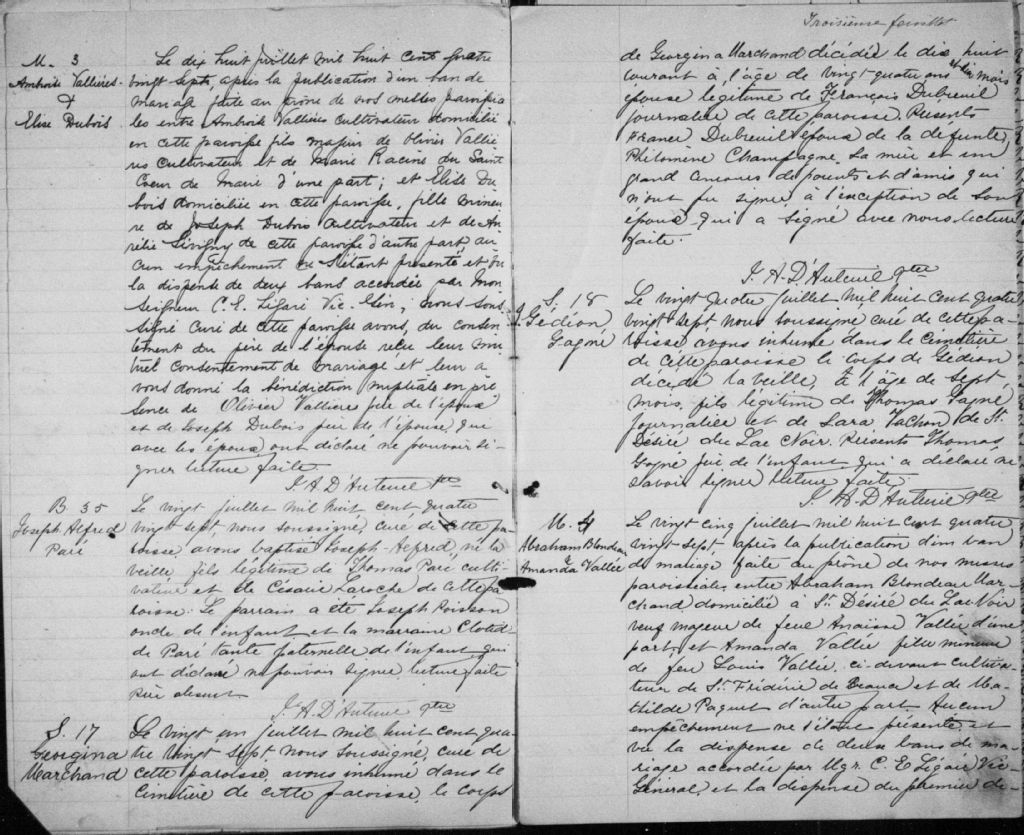 M. 3
Ambroise Vallières
&
Elise Dubois
Le dix huit Juillet mil huit cent quatre
vingt sept, après la publication d'un ban de
mariage faite au prône de nos messes paroissia
les entre Ambroise Vallières cultivateur domicilié
en cette paroisse fils majeur de Olivier Valliè
res cultivateur et de Marie Racine du Saint
Coeur de Marie d'une part; et Elise Du
bois domiciliée en cette paroisse, fille mineu
re de Joseph Dubois cultivateur et de Au
rélie Sévigny de cette paroisse d'autre part au
cun empêchement ne s'étant présenté et vu
la dispense de deux bans accordée par Mon
seigneur C. E. Légaré Vic. Gén., nous sous
signé curé de cette paroisse avons, du consen
tement du père de l'épouse reçu leur mu
tuel consentement de mariage et leur a
vons donné la bénédiction nuptiale en pré
sence de Olivier Vallières père de l'époux
et de Joseph Dubois père de l'épouse, qui
avec les époux, ont déclaré ne pouvoir si
gner lecture faite.
J. A. D'Auteuil Ptre
B. 35
Joseph Alfred
Paré
Le vingt juillet mil huit cent quatre
vingt sept, nous soussigné, curé de cette pa
roisse, avons baptisé Joseph-Alfred, né la
veille, fils légitime de Thomas Paré culti
vateur et de Césarie Laroche de cette pa
roisse. Le parrain a été Joseph Poisson
oncle de l'enfant et la marraine Clotil
de Paré tante paternelle de l'enfant, qui
ont déclaré ne pouvoir signer, lecture faite
Père absent
J. A. D'Auteuil Ptre
S. 17
Georgina
Marchand
Le vingt un Juillet mil huit cent qua
tre vingt sept, nous soussigné, curé de
cette paroisse, avons inhumé dans le
cimetière de cette paroisse, le corps
Troisième feuillet
de Georgina Marchand décédée le dix huit
courant à l'âge de vingt-quatre ans et six mois
épouse légitime de François Dubreuil
journalier de cette paroisse. Présents
Franc. Dubreuil époux de la défunte,
Philomène Champagne, sa mère et un
grand concours de parents et d'amis qui
n'ont pu signer, à l'exception de son
époux qui a signé avec nous. lecture
faite.
J. A. D'Auteuil Ptre
S. 18
J. Gédéon
Gagné
Le vingt quatre Juillet mil huit cent quatre
vingt sept nous soussigné curé de cette pa
roisse avons inhumé dans le cimetière
de cette paroisse le corps de Gédéon
décédé la veille, à l'âge de sept
mois, fils légitime de Thomas Gagné
journalier et de Sara Vachon de St.
Désiré du Lac Noir. Présents Thomas
Gagné père de l'enfant qui a déclaré ne
savoir signer lecture faite.
J. A. D'Auteuil Ptre
M. 4
Abraham Blondeau
&
Amanda Vallée
Le vingt cinq juillet mil huit cent quatre
vingt-sept, après la publication d'un ban
de mariage faite au prône de nos messes
paroissiales, entre Abraham Blondeau Mar
chand domicilié à St. Désiré du Lac Noir
veuf majeur de feue Anaïsse Vallée d'une
part, et Amanda Vallée fille mineure
de feu Louis Vallée, ci-devant cultiva
teur de St. Frédéric de Beauce et de Ma
thilde Paquet d'autre part Aucun
empêchement ne s'étant présenté, et
vu la dispense de deux bans de ma
riage accordée par Mgr. C. E. Légaré Vic.
Général, et la dispense du premier de-